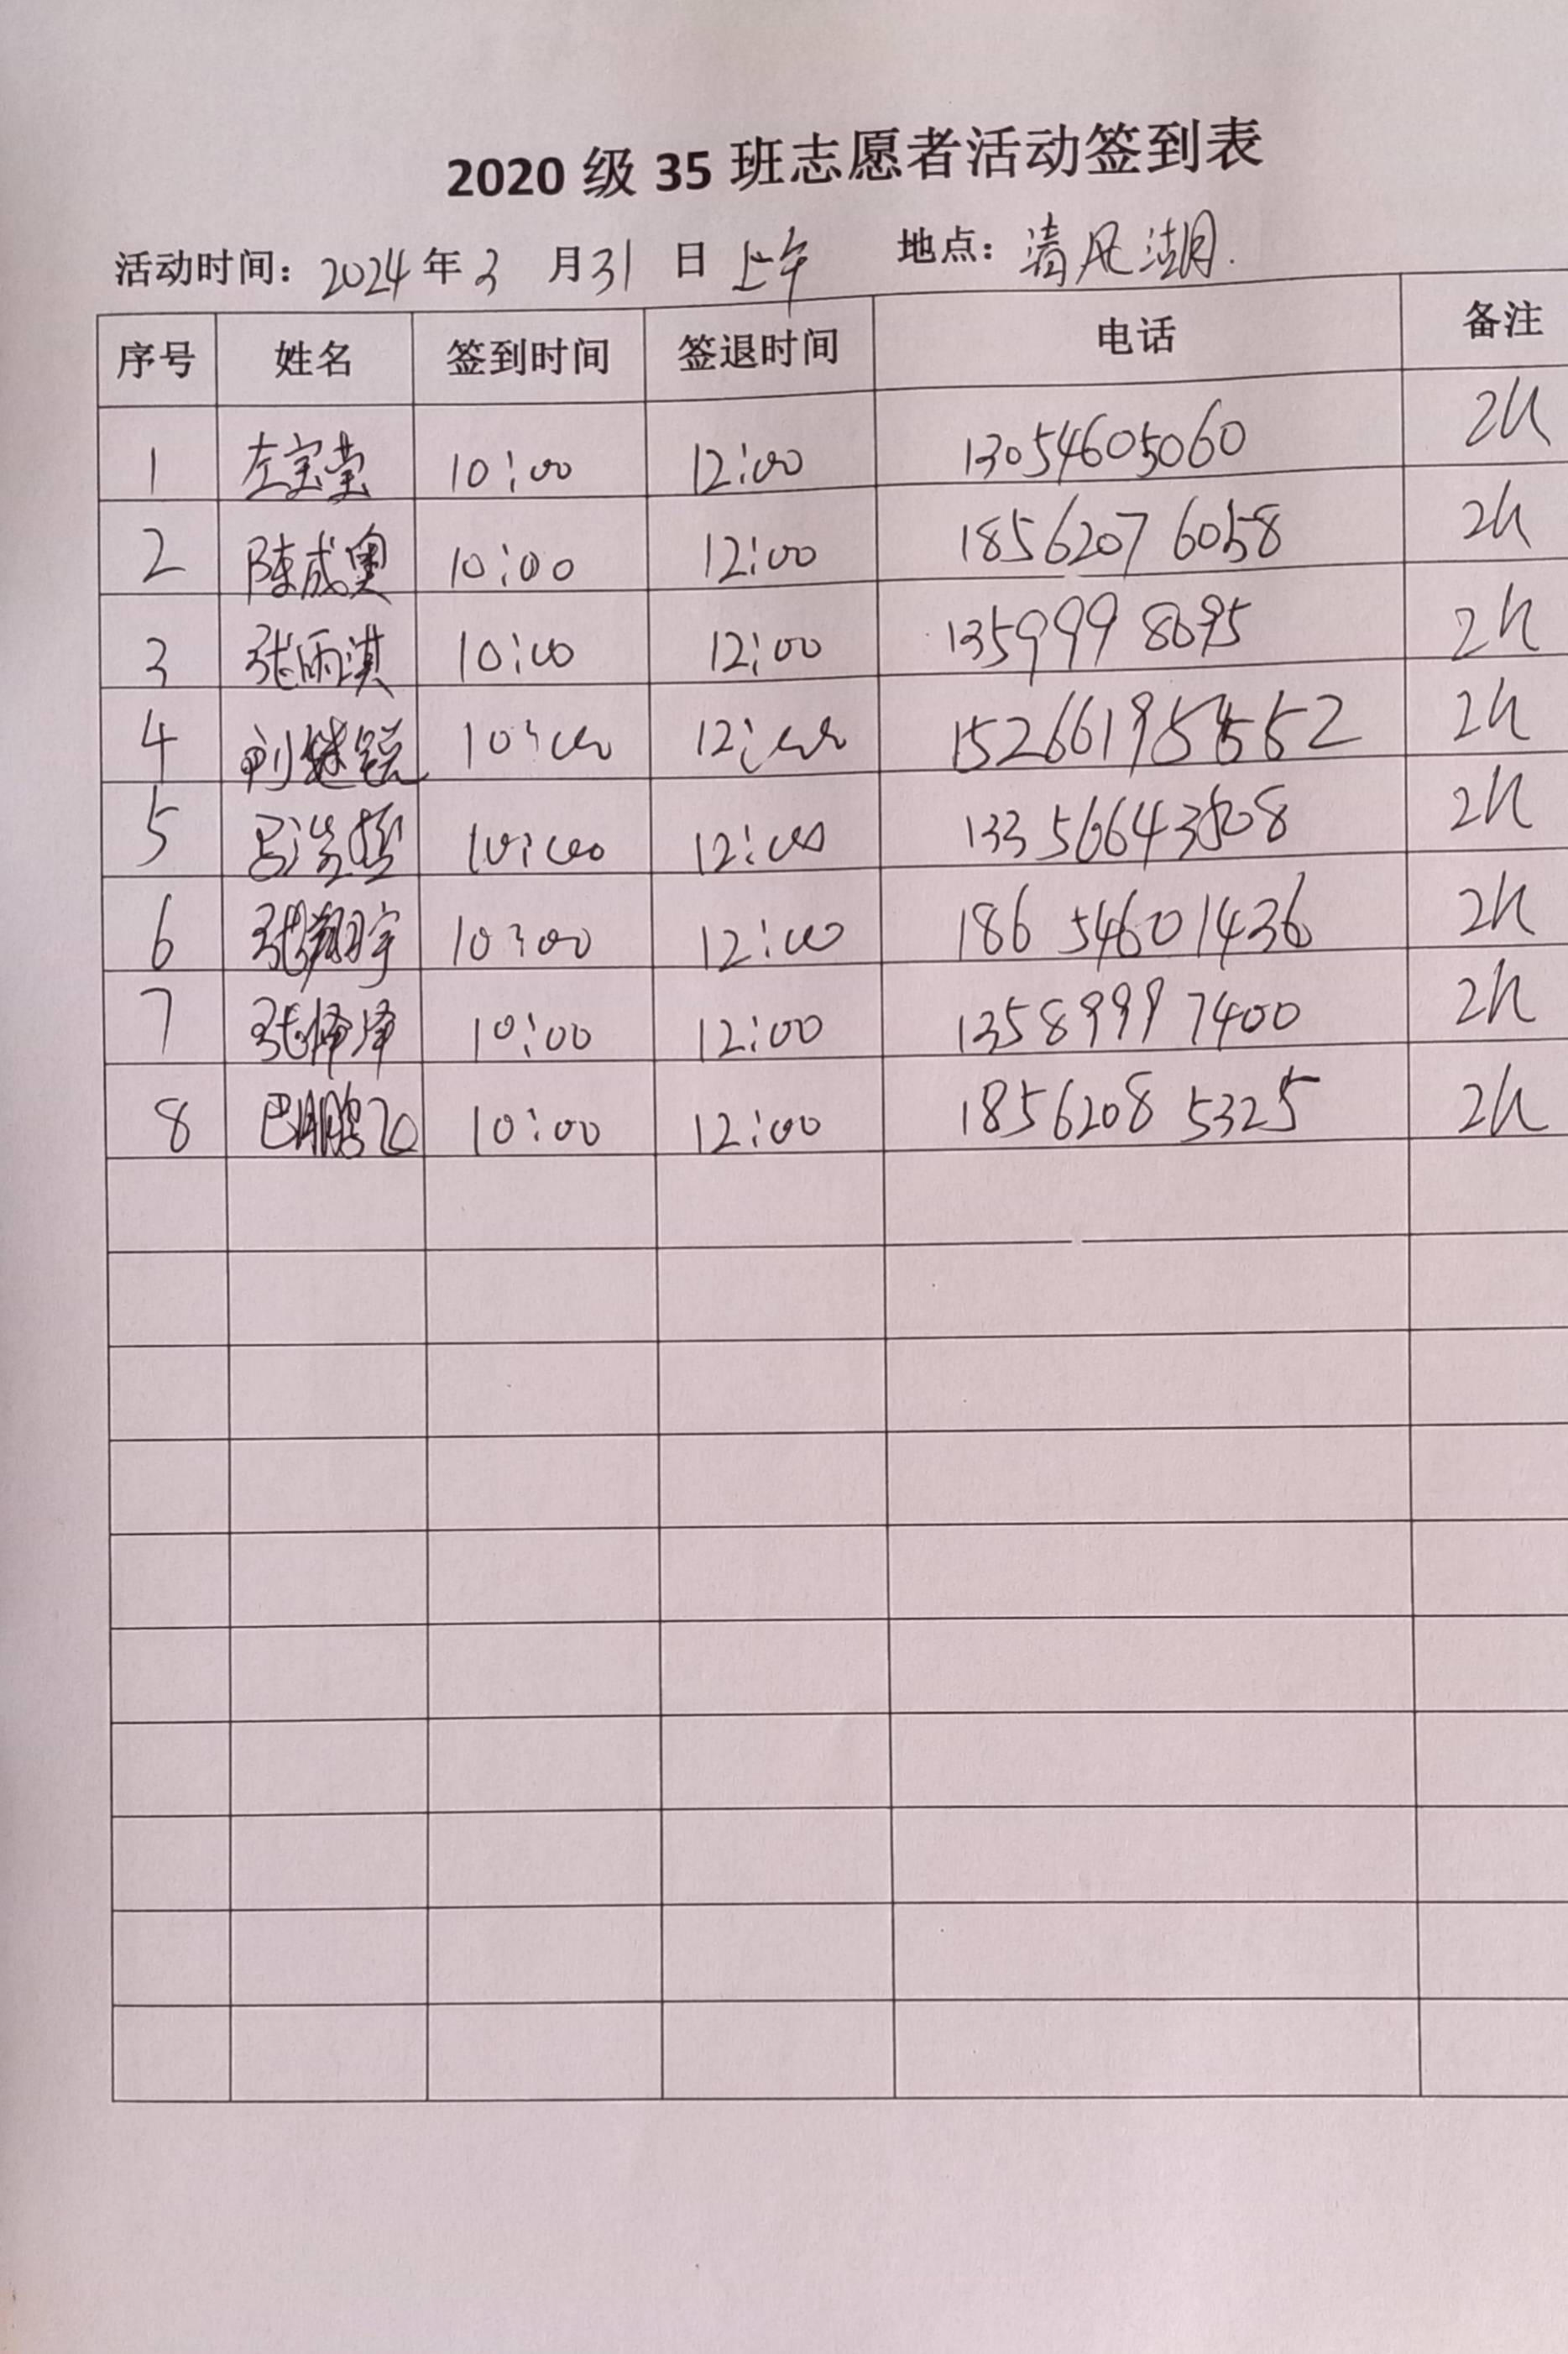 2020 级 35 班志愿者活动签到表
活动时间：2024 年 3 月 31 日 上午 地点：清风湖.
序号 姓名 签到时间 签退时间 电话 备注
1 左宝莹 10:00 12:00 13054605060 2h
2 陈成奥 10:00 12:00 18562076058 2h
3 张雨淇 10:00 12:00 2h
4 10:00 12:00 2h
5 10:00 12:00 2h
6 张翔宇 10:00 12:00 186 54601436 2h
7 10:00 12:00 13589997400 2h
8 10:00 12:00 18562085325 2h